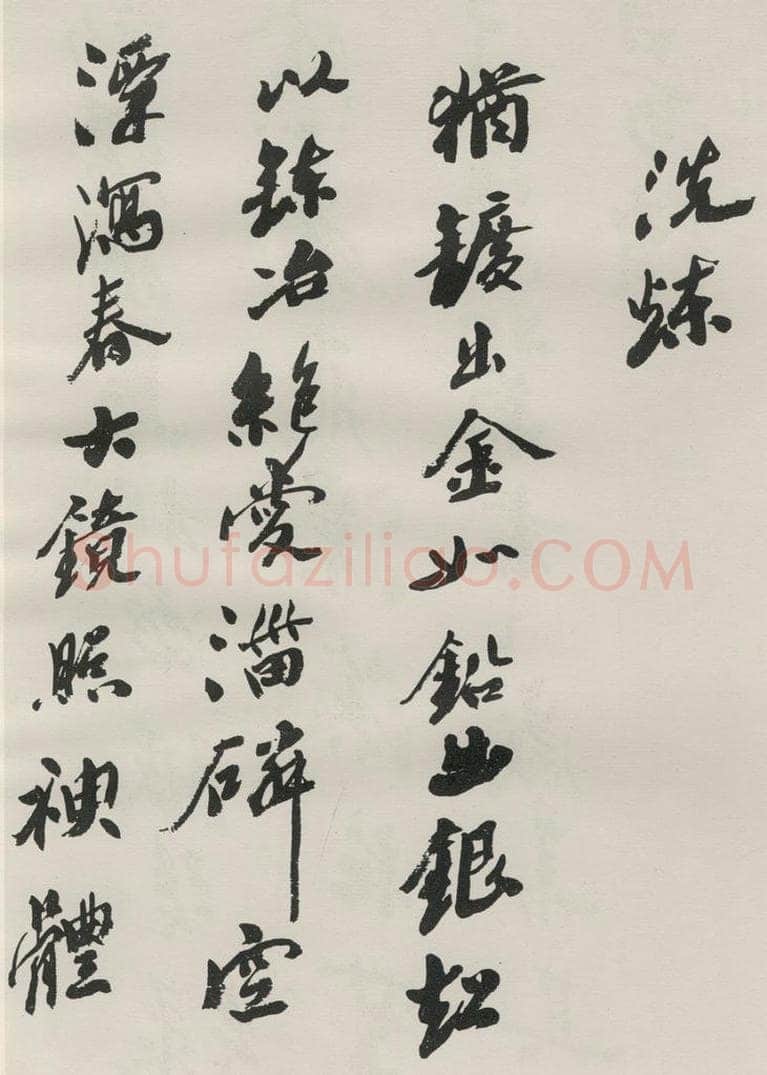 洗煉
猶鑛出金如鉛出銀超
心鍊冶絕愛淄磷空
潭瀉春古鏡照神體
Shufaziliao.COM